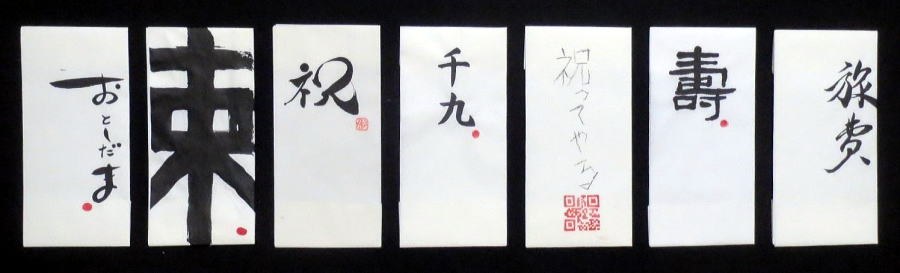 おとしだま
束
祝
千九
祝ってやる
壽
旅費